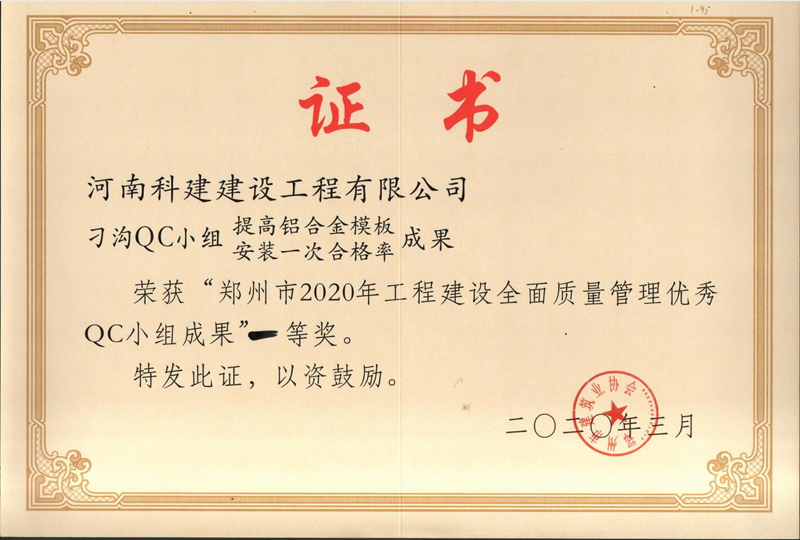 1-95
证书
河南科建建设工程有限公司
刁沟QC小组 提高铝合金模板安装一次合格率 成果
荣获“郑州市2020年工程建设全面质量管理优秀
QC小组成果”一等奖。
特发此证，以资鼓励。
郑州市建筑业协会
二〇二〇年三月